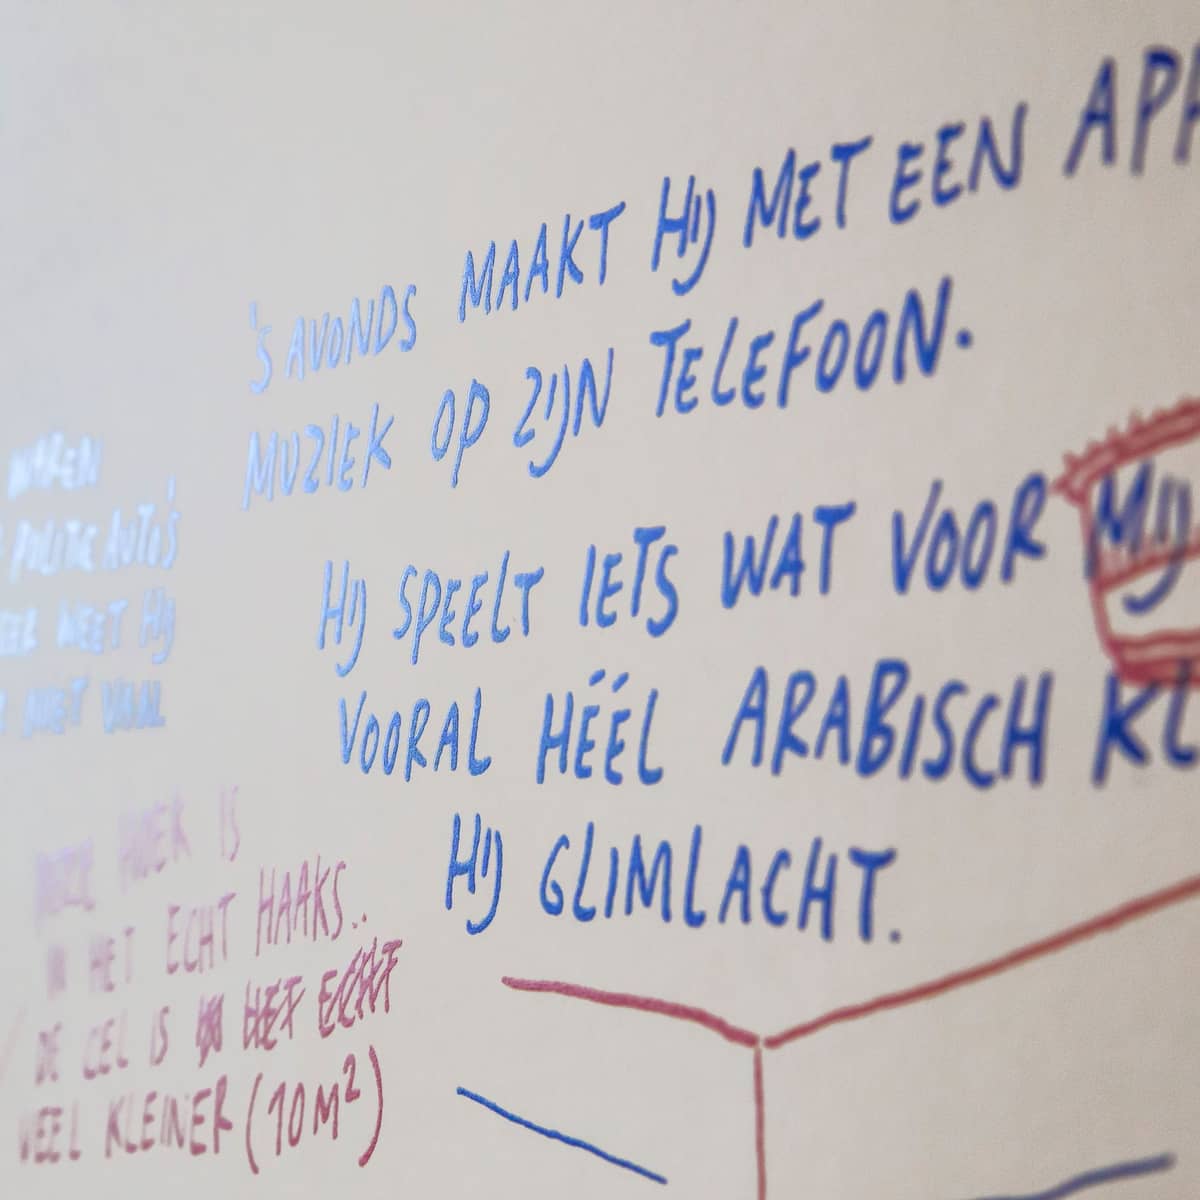 'S AVONDS MAAKT HIJ MET EEN APP
MUZIEK OP ZIJN TELEFOON.
HIJ SPEELT IETS WAT VOOR MIJ
VOORAL HÉÉL ARABISCH KL
HIJ GLIMLACHT.
WAREN
POLITIE AUTO'S
WEET HIJ
NIET
DEZE HOEK IS
IN HET ECHT HAAKS..
DE CEL IS IN HET ECHT
VEEL KLEINER (10M²)